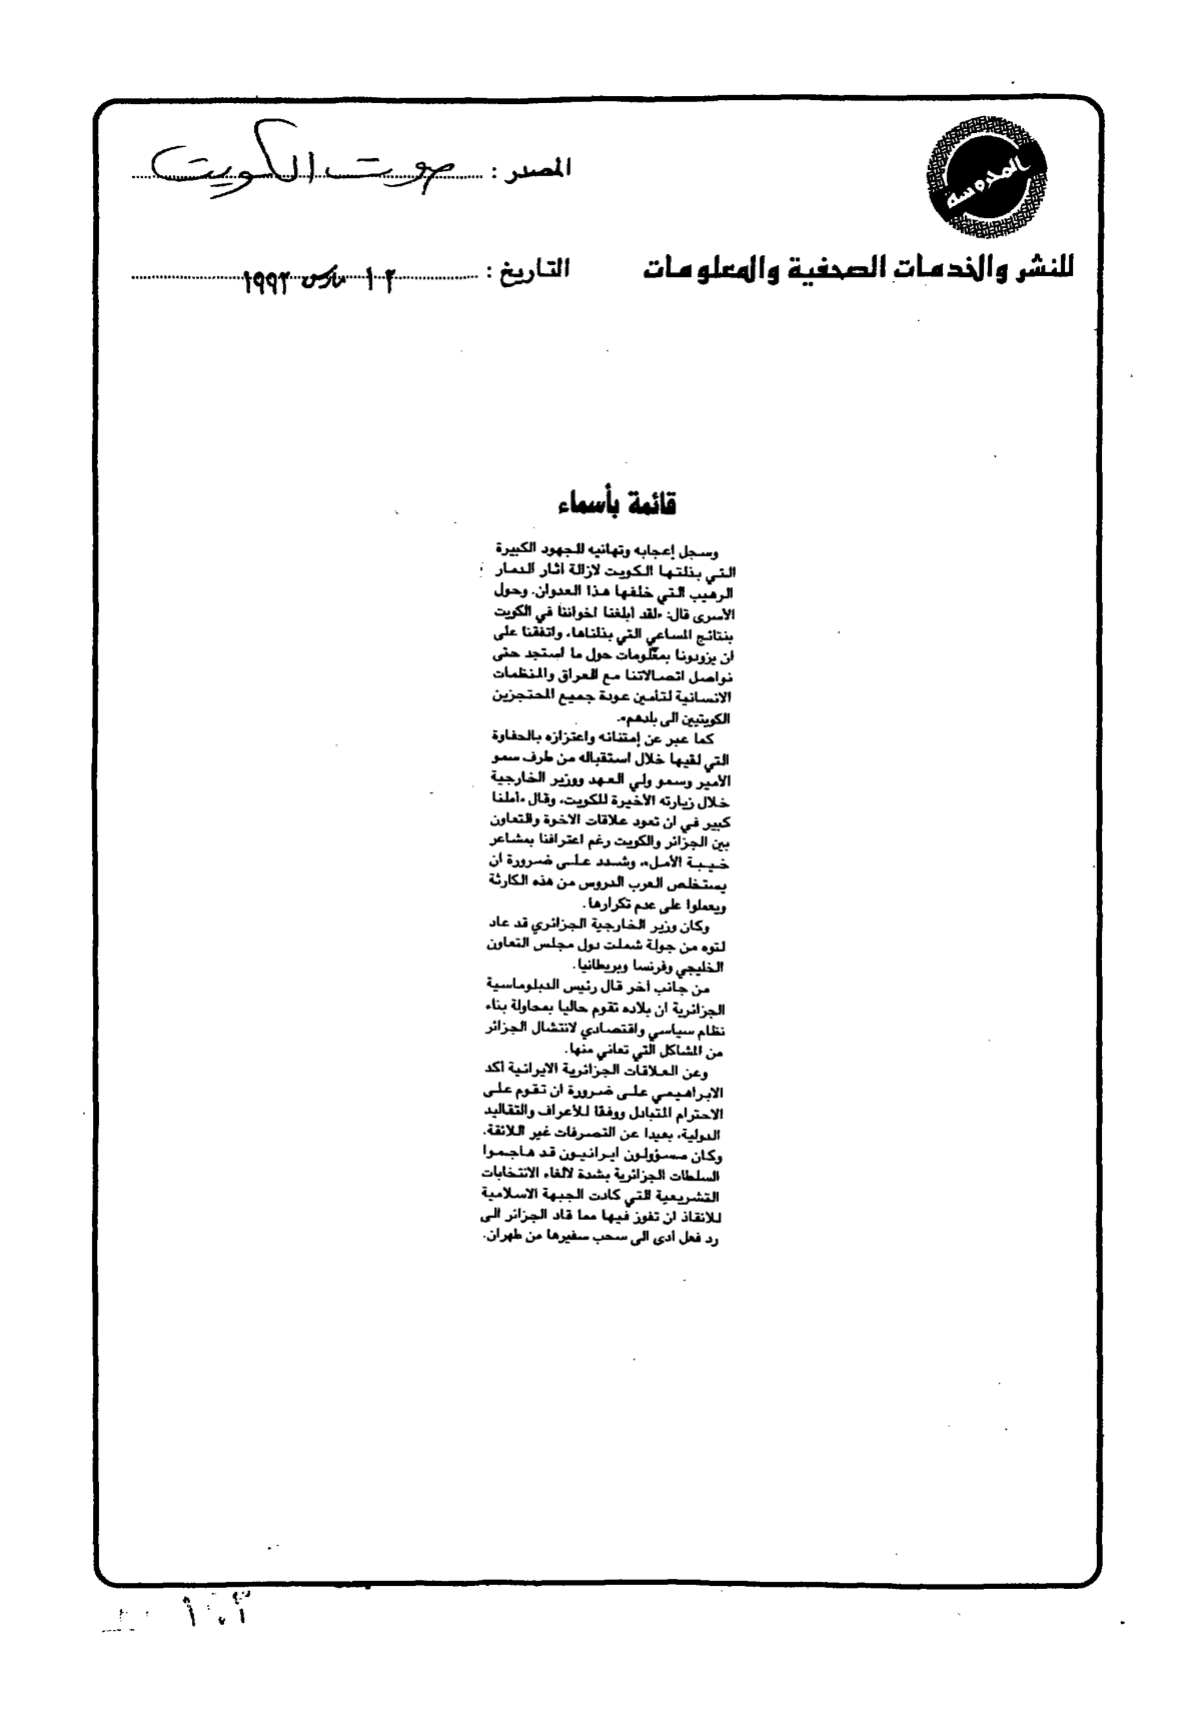 المحروسة
المصدر : صوت الكويت
للنشر والخدمات الصحفية والمعلومات
التاريخ : ١٢ مارس ١٩٩٢
قائمة بأسماء
وسجل إعجابه وتهانيه للجهود الكبيرة
التي بذلتها الكويت لازالة آثار الدمار
الرهيب التي خلفها هذا العدوان. وحول
الأسرى قال: «لقد أبلغنا اخواننا في الكويت
بنتائج المساعي التي بذلناها، واتفقنا على
ان يزودونا بمعلومات حول ما استجد حتى
نواصل اتصالاتنا مع العراق والمنظمات
الانسانية لتأمين عودة جميع المحتجزين
الكويتيين الى بلدهم».
كما عبر عن إمتنانه واعتزازه بالحفاوة
التي لقيها خلال استقباله من طرف سمو
الأمير وسمو ولي العهد ووزير الخارجية
خلال زيارته الأخيرة للكويت، وقال «أملنا
كبير في ان تعود علاقات الاخوة والتعاون
بين الجزائر والكويت رغم اعترافنا بمشاعر
خيبة الأمل»، وشدد على ضرورة ان
يستخلص العرب الدروس من هذه الكارثة
ويعملوا على عدم تكرارها.
وكان وزير الخارجية الجزائري قد عاد
لتوه من جولة شملت دول مجلس التعاون
الخليجي وفرنسا وبريطانيا.
من جانب آخر قال رئيس الدبلوماسية
الجزائرية ان بلاده تقوم حاليا بمحاولة بناء
نظام سياسي واقتصادي لانتشال الجزائر
من المشاكل التي تعاني منها.
وعن العلاقات الجزائرية الايرانية أكد
الابراهيمي على ضرورة ان تقوم على
الاحترام المتبادل ووفقا للأعراف والتقاليد
الدولية، بعيدا عن التصرفات غير اللائقة.
وكان مسؤولون ايرانيون قد هاجموا
السلطات الجزائرية بشدة لالغاء الانتخابات
التشريعية التي كادت الجبهة الاسلامية
للانقاذ ان تفوز فيها مما قاد الجزائر الى
رد فعل أدى الى سحب سفيرها من طهران.